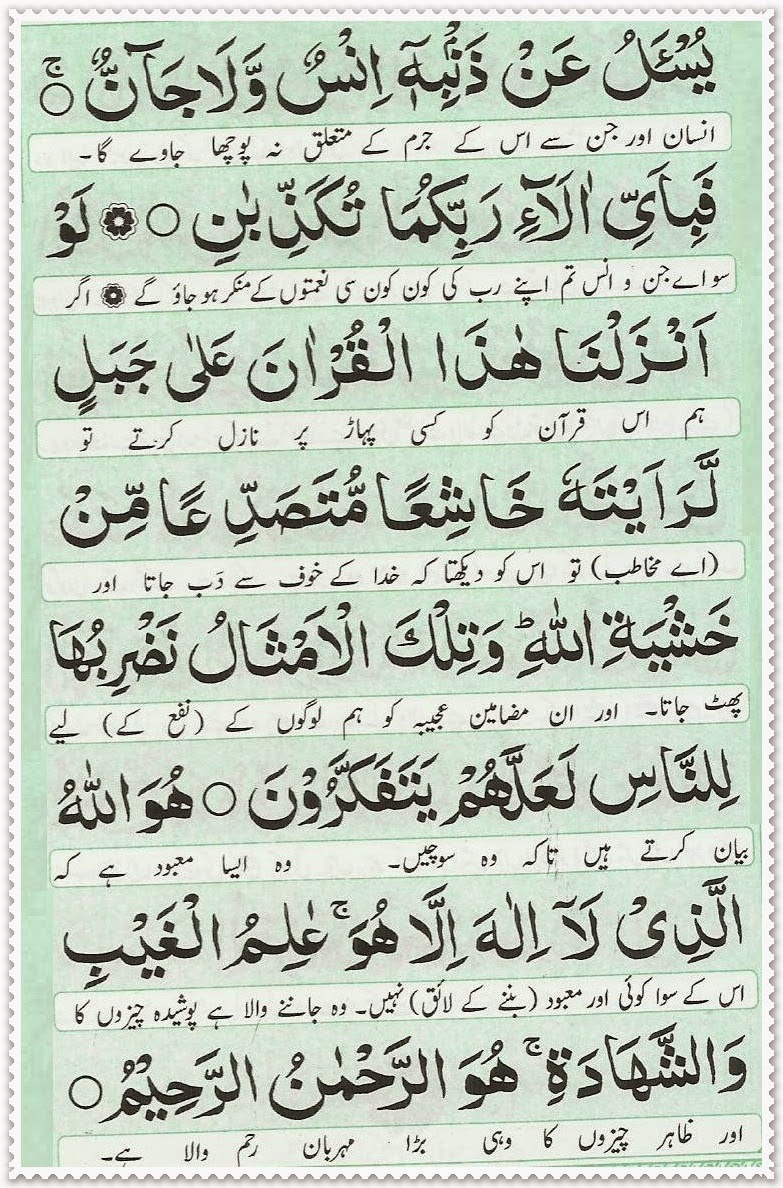 يُسْـَٔلُ عَنْ ذَنْۢبِهٖۤ اِنْسٌ وَّلَا جَآنٌّ ۚ○
انسان اور جن سے اس کے جرم کے متعلق نہ پوچھا جاوے گا۔
فَبِاَیِّ اٰلَآءِ رَبِّكُمَا تُكَذِّبٰنِ ○ ❁ لَوْ
سو اے جن و انس تم اپنے رب کی کون کون سی نعمتوں کے منکر ہو جاؤ گے ❁ اگر
اَنْزَلْنَا هٰذَا الْقُرْاٰنَ عَلٰی جَبَلٍ
ہم اس قرآن کو کسی پہاڑ پر نازل کرتے تو
لَّرَاَیْتَهٗ خَاشِعًا مُّتَصَدِّعًا مِّنْ
(اے مخاطب) تو اس کو دیکھتا کہ خدا کے خوف سے دَب جاتا اور
خَشْیَةِ اللّٰهِ ؕ وَتِلْكَ الْاَمْثَالُ نَضْرِبُهَا
پھٹ جاتا۔ اور ان مضامین عجیبہ کو ہم لوگوں کے (نفع کے) لیے
لِلنَّاسِ لَعَلَّهُمْ یَتَفَكَّرُوْنَ ○ هُوَ اللّٰهُ
بیان کرتے ہیں تاکہ وہ سوچیں۔ وہ ایسا معبود ہے کہ
الَّذِیْ لَاۤ اِلٰهَ اِلَّا هُوَ ۚ عٰلِمُ الْغَیْبِ
اس کے سوا کوئی اور معبود (بننے کے لائق) نہیں۔ وہ جاننے والا ہے پوشیدہ چیزوں کا
وَالشَّهَادَةِ ۚ هُوَ الرَّحْمٰنُ الرَّحِیْمُ ○
اور ظاہر چیزوں کا وہی بڑا مہربان رحم والا ہے۔